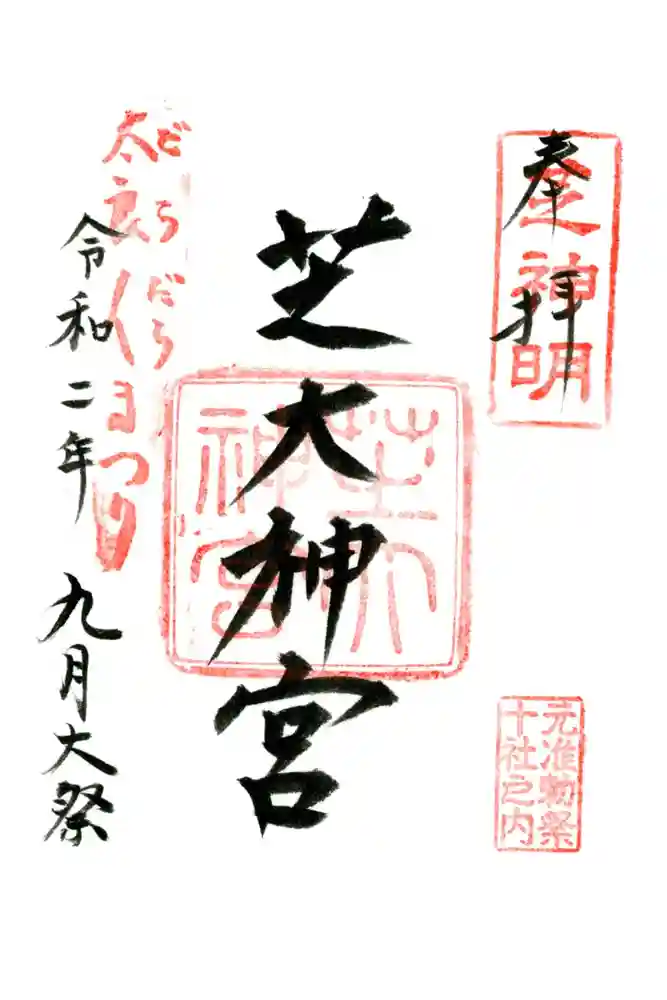 奉拝
芝神明
元准勅祭
十社之内
芝大神宮
芝大
神宮
だらだら
太良くまつり
令和二年
九月大祭